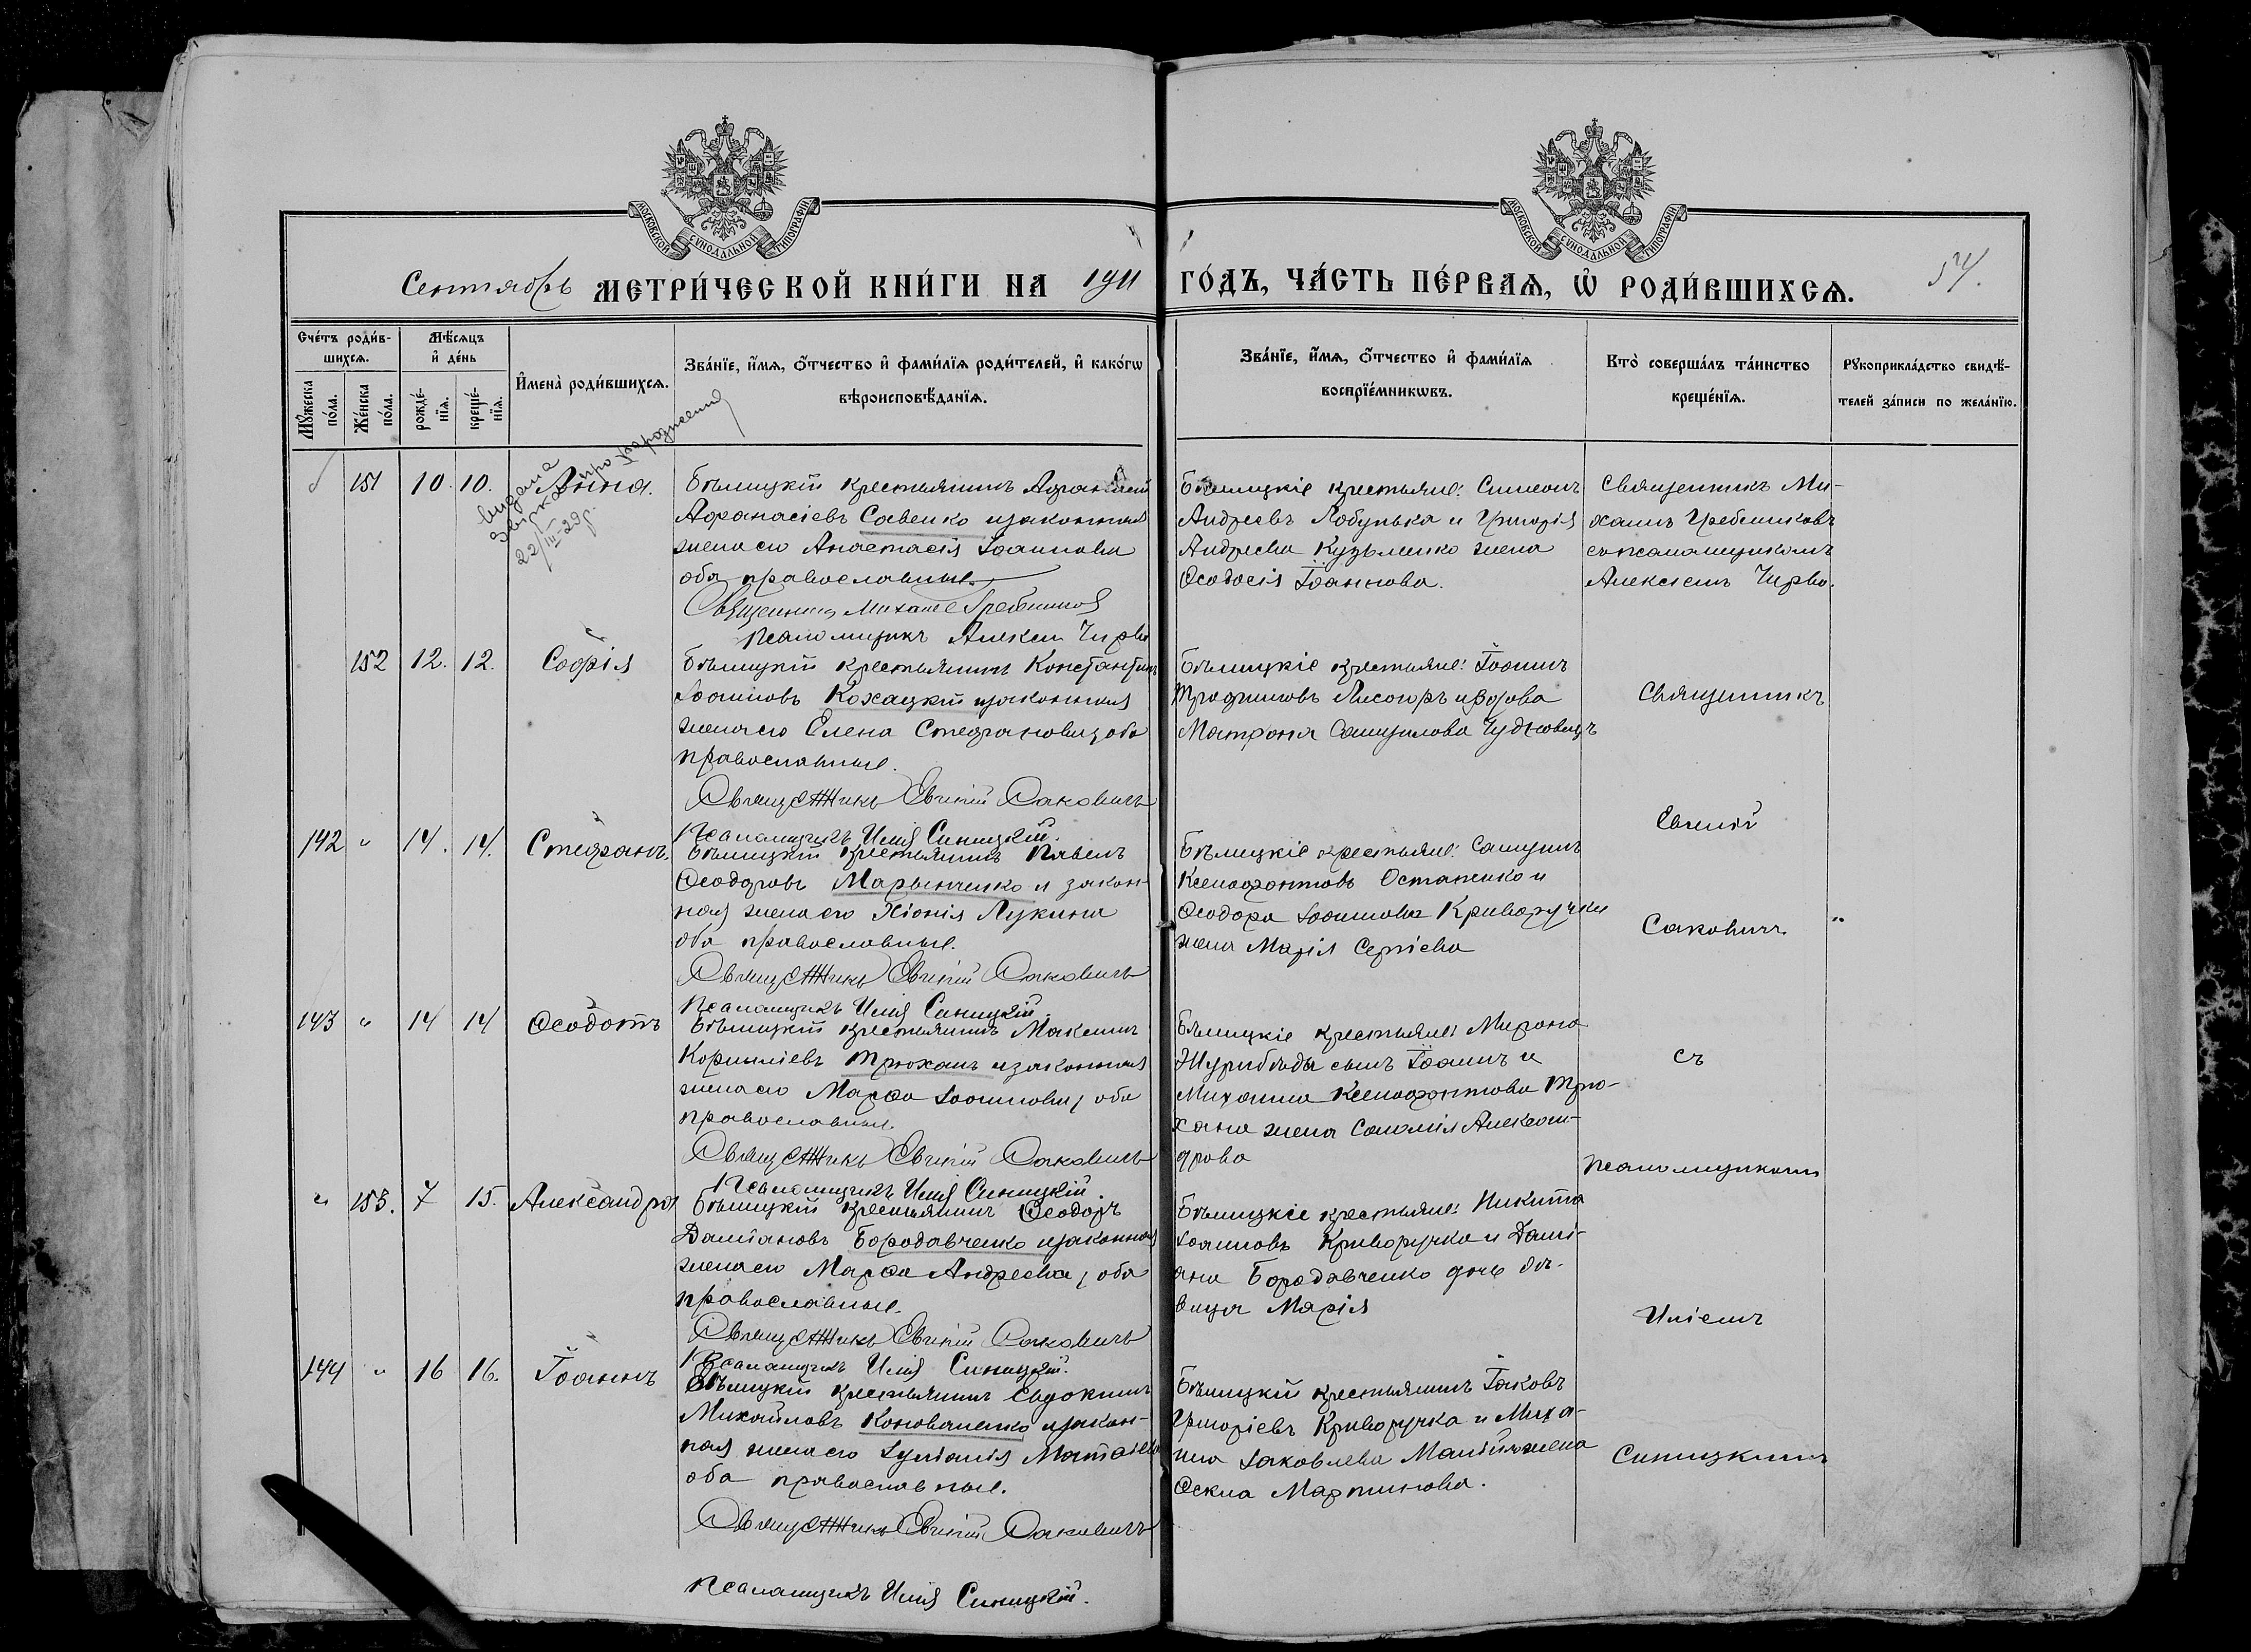 МОСКОВСКОЙ СѴНОДАЛЬНОЙ ТИПОГРАФІИ
МОСКОВСКОЙ СѴНОДАЛЬНОЙ ТИПОГРАФІИ
Сентябрь МЕТРИ́ЧЕСКОЙ КНИ́ГИ НА 1911 ГО́ДЪ, ЧА́СТЬ ПЕ́РВАѦ, Ѡ҆ РОДИ́ВШИХСѦ.
54.
Сче́тъ роди́в-
шихсѧ.
Мꙋ́жеска
по́ла.
Же́нска
по́ла.
Мѣ́сѧцъ
и҆ де́нь
рожде́-
нїѧ.
креще́-
нїѧ.
И҆мена̀ роди́вшихсѧ.
Зва́нїе, и҆́мѧ, ѻ҆́тчество и҆ фами́лїѧ роди́телей, и҆ како́гѡ
вѣроисповѣ́данїѧ.
Зва́нїе, и҆́мѧ, ѻ҆́тчество и҆ фами́лїѧ
воспрїе́мникѡвъ.
Кто̀ соверша́лъ та́инство
креще́нїѧ.
Рꙋкоприкла́дство свидѣ́-
телей за́писи по жела́нїю.
видана
довідка про народження
22/III-29р.
151 10. 10. Анна.
Бѣлицкій крестьянинъ Аѳанасій
Аѳанасіевъ Савенко и законная
жена его Анастасія Іоаннова
оба православные.
Священникъ Михаилъ Гребинниковъ
Псаломщикъ Алексій Чирво
Бѣлицкіе крестьяне: Симеонъ
Андреевъ Лобунька и Григорія
Андреева Кузьменко жена
Ѳеодосія Іоаннова.
Священникъ Ми-
хаилъ Гребенниковъ
съ псаломщикомъ
Алексіемъ Чирво.
152 12. 12. Софія
Бѣлицкій крестьянинъ Константинъ
Іоанновъ Кохацкій и законная
жена его Елена Стефановна, оба
православные.
Священникъ Евгеній Саковичъ
Псаломщикъ Илія Синицкій.
Бѣлицкіе крестьяне: Іоаннъ
Трофимовъ Лисогоръ и вдова
Матрона Самуилова Чудновецъ
Священникъ
142 " 14. 14. Стефанъ.
Бѣлицкій крестьянинъ Павелъ
Ѳеодоровъ Марынченко и закон-
ная жена его Хіонія Лукина
оба православные.
Священникъ Евгеній Саковичъ
Псаломщикъ Илія Синицкій.
Бѣлицкіе крестьяне: Самуилъ
Ксенофонтовъ Остапенко и
Ѳеодора Іоаннова Криворучки
жена Марія Сергіева
Евгеній
Саковичъ
"
143 " 14 14 Ѳеодотъ
Бѣлицкій крестьянинъ Максимъ
Корниліевъ Трюханъ и законная
жена его Марѳа Іоаннова, оба
православные.
Священникъ Евгеній Саковичъ
Псаломщикъ Илія Синицкій.
Бѣлицкіе крестьяне: Мирона
Журибѣды сынъ Іоаннъ и
Михаила Ксенофонтова Трю-
хана жена Соломія Алексан-
дрова
съ
псаломщикомъ
" 153. 7 15. Александра
Бѣлицкій крестьянинъ Ѳеодоръ
Даміановъ Бородавченко и законная
жена его Марѳа Андреева, оба
православные.
Священникъ Евгеній Саковичъ
Псаломщикъ Илія Синицкій.
Бѣлицкіе крестьяне: Никита
Іоанновъ Криворучка и Дамі-
ана Бородавченко дочь дѣ-
вица Марія
Иліемъ
144 " 16 16. Іоаннъ
Бѣлицкій крестьянинъ Евдокимъ
Михайловъ Коноваленко и закон-
ная жена его Іуліанія Матѳіева
оба православные.
Священникъ Евгеній Саковичъ
Псаломщикъ Илія Синицкій.
Бѣлицкій крестьянинъ Іаковъ
Григоріевъ Криворучка и Миха-
ила Іаковлева жена
Ѳекла Мартинова.
Синицкимъ